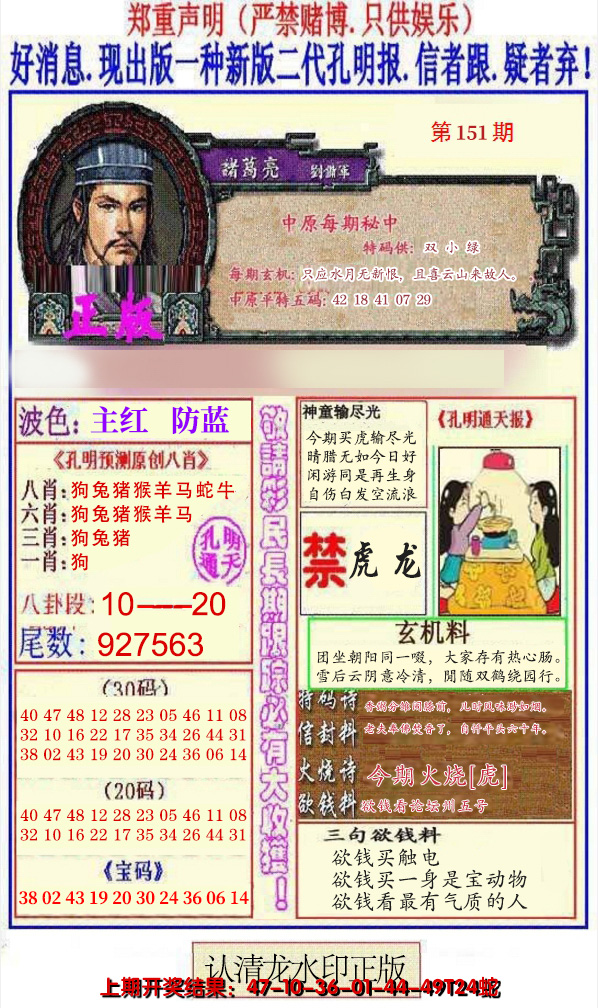 郑重声明（严禁赌博.只供娱乐）
好消息.现出版一种新版二代孔明报.信者跟.疑者弃!
第 151 期
諸葛亮 劉備軍
中原每期秘中
特码供: 双 小 绿
每期玄机: 只应水月无新恨，且喜云山来故人。
中原平特五码: 42 18 41 07 29
正版
波色: 主红 防蓝
《孔明预测原创八肖》
八肖:狗兔猪猴羊马蛇牛
六肖:狗兔猪猴羊马
三肖:狗兔猪
一肖:狗
孔明
通天
八卦段: 10----20
尾数: 927563
(30码)
40 47 48 12 28 23 05 46 11 08
32 10 16 22 17 35 34 26 44 31
38 02 43 19 20 30 24 36 06 14
(20码)
40 47 48 12 28 23 05 46 11 08
32 10 16 22 17 35 34 26 44 31
《宝码》
38 02 43 19 20 30 24 36 06 14
敬請彩民長期跟踪必有大收獲！
神童输尽光
今期买虎输尽光
晴腊无如今日好
闲游同是再生身
自伤白发空流浪
《孔明通天报》
禁 虎 龙
玄机料
团坐朝阳同一啜，大家存有热心肠。
雪后云阴意冷清，閒随双鹤绕园行。
特码诗
香粥分餽闹膝前，儿时风味渺如烟。
信封料
老夫奉佛焚香了，自伴平头六十年。
火烧诗 今期火烧[虎]
欲钱料 欲钱看论坛州五号
三句欲钱料
欲钱买触电
欲钱买一身是宝动物
欲钱看最有气质的人
认清龙水印正版
上期开奖结果：47-10-36-01-44-49T24蛇